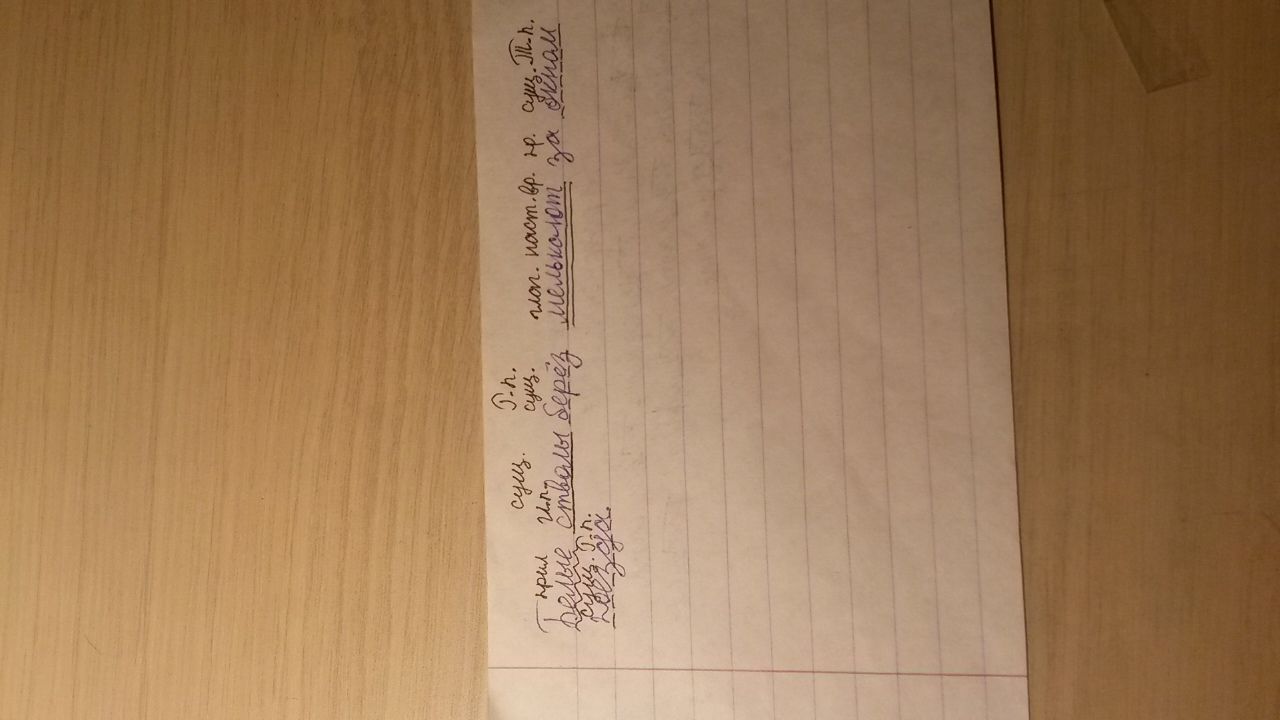 сущ. Г.п.
прил И.п. сущ. глаг. наст.вр. пр. сущ. Т.п.
Белые стволы берёз мелькают за окном
сущ. Г.п.
поезда.